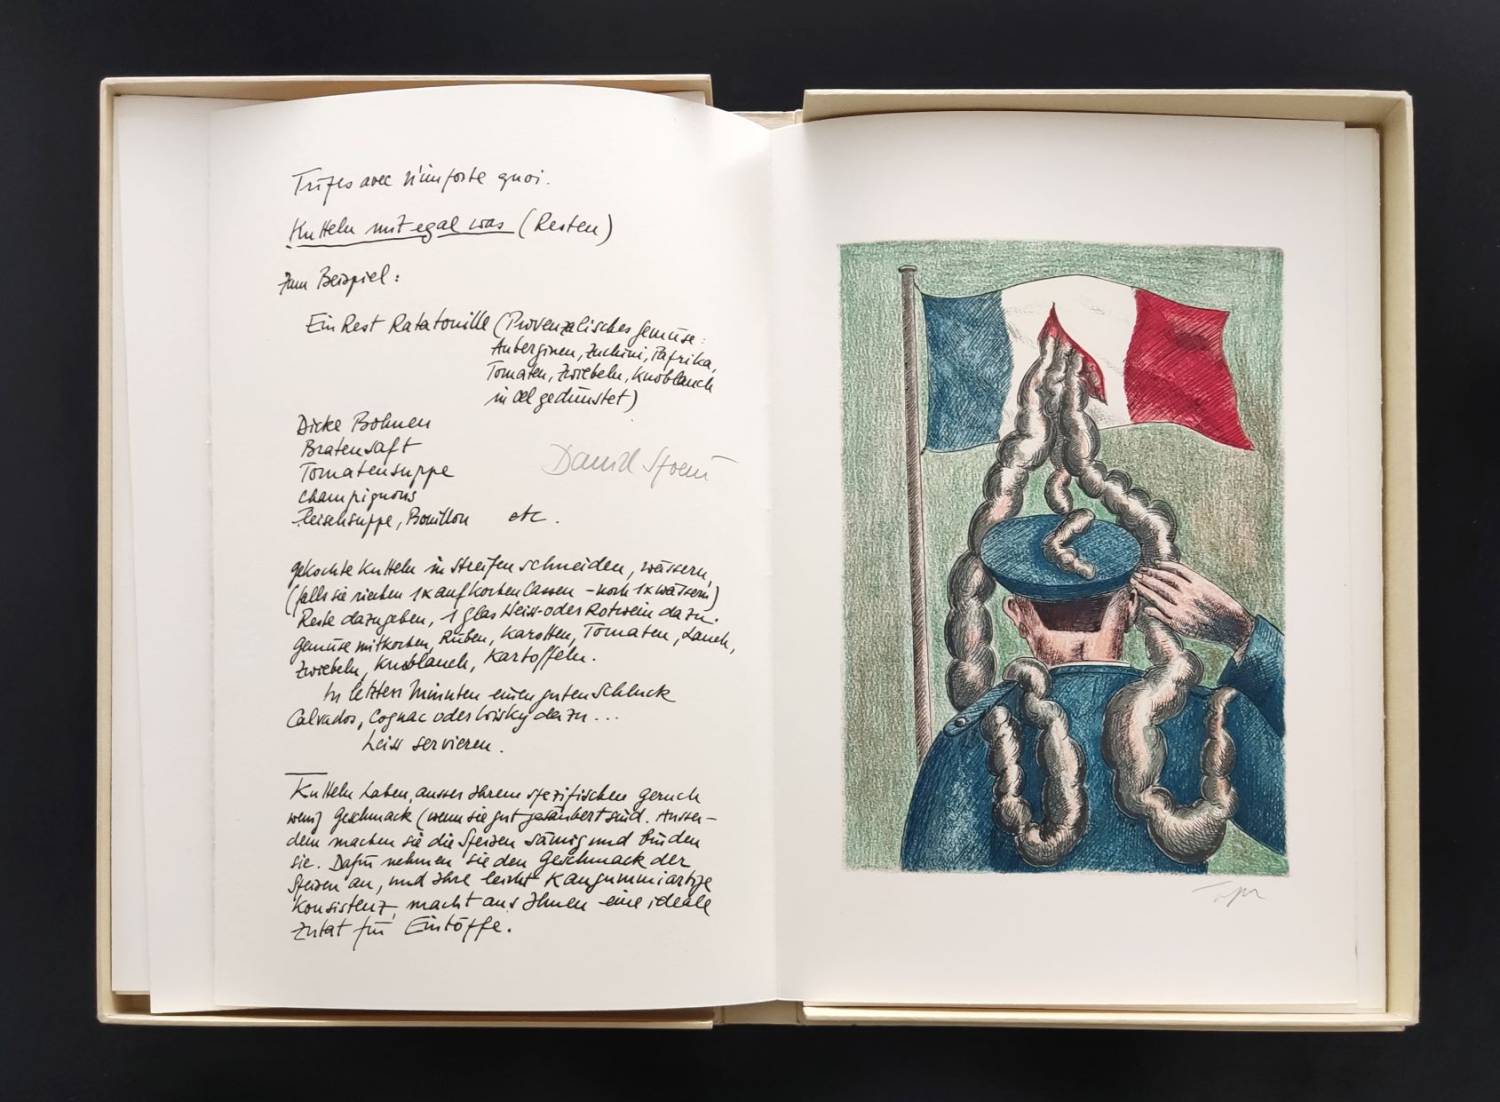 Tripes avec n'importe quoi.
Kutteln mit egal was (Resten)
Zum Beispiel:
Ein Rest Ratatouille (Provenzalisches Gemüse:
Auberginen, Zuchini, Paprika,
Tomaten, Zwiebeln, Knoblauch
in Oel gedünstet)
Dicke Bohnen
Bratensaft
Tomatensuppe
Champignons
Fleischsuppe, Bouillon etc.
Daniel Spoerri
gekochte Kutteln in Streifen schneiden, wässern,
(falls sie riechen 1x aufkochen lassen – noch 1x wässern)
Reste dazugeben, 1 Glas Weiss- oder Rotwein dazu.
Gemüse mitkochen, Rüben, Karotten, Tomaten, Lauch,
Zwiebeln, Knoblauch, Kartoffeln.
In letzten Minuten einen guten Schluck
Calvados, Cognac oder Wisky dazu...
heiss servieren.
Kutteln haben, ausser Ihrem spezifischen geruch
wenig Geschmack (wenn sie gut gesäubert sind. Ausser-
dem machen sie die Speisen sämig und binden
sie. Dafür nehmen sie den Geschmack der
Speisen an, und Ihre leicht Kaugummiartige
Konsistenz, macht aus Ihnen eine ideale
Zutat für Eintöpfe.
Topor